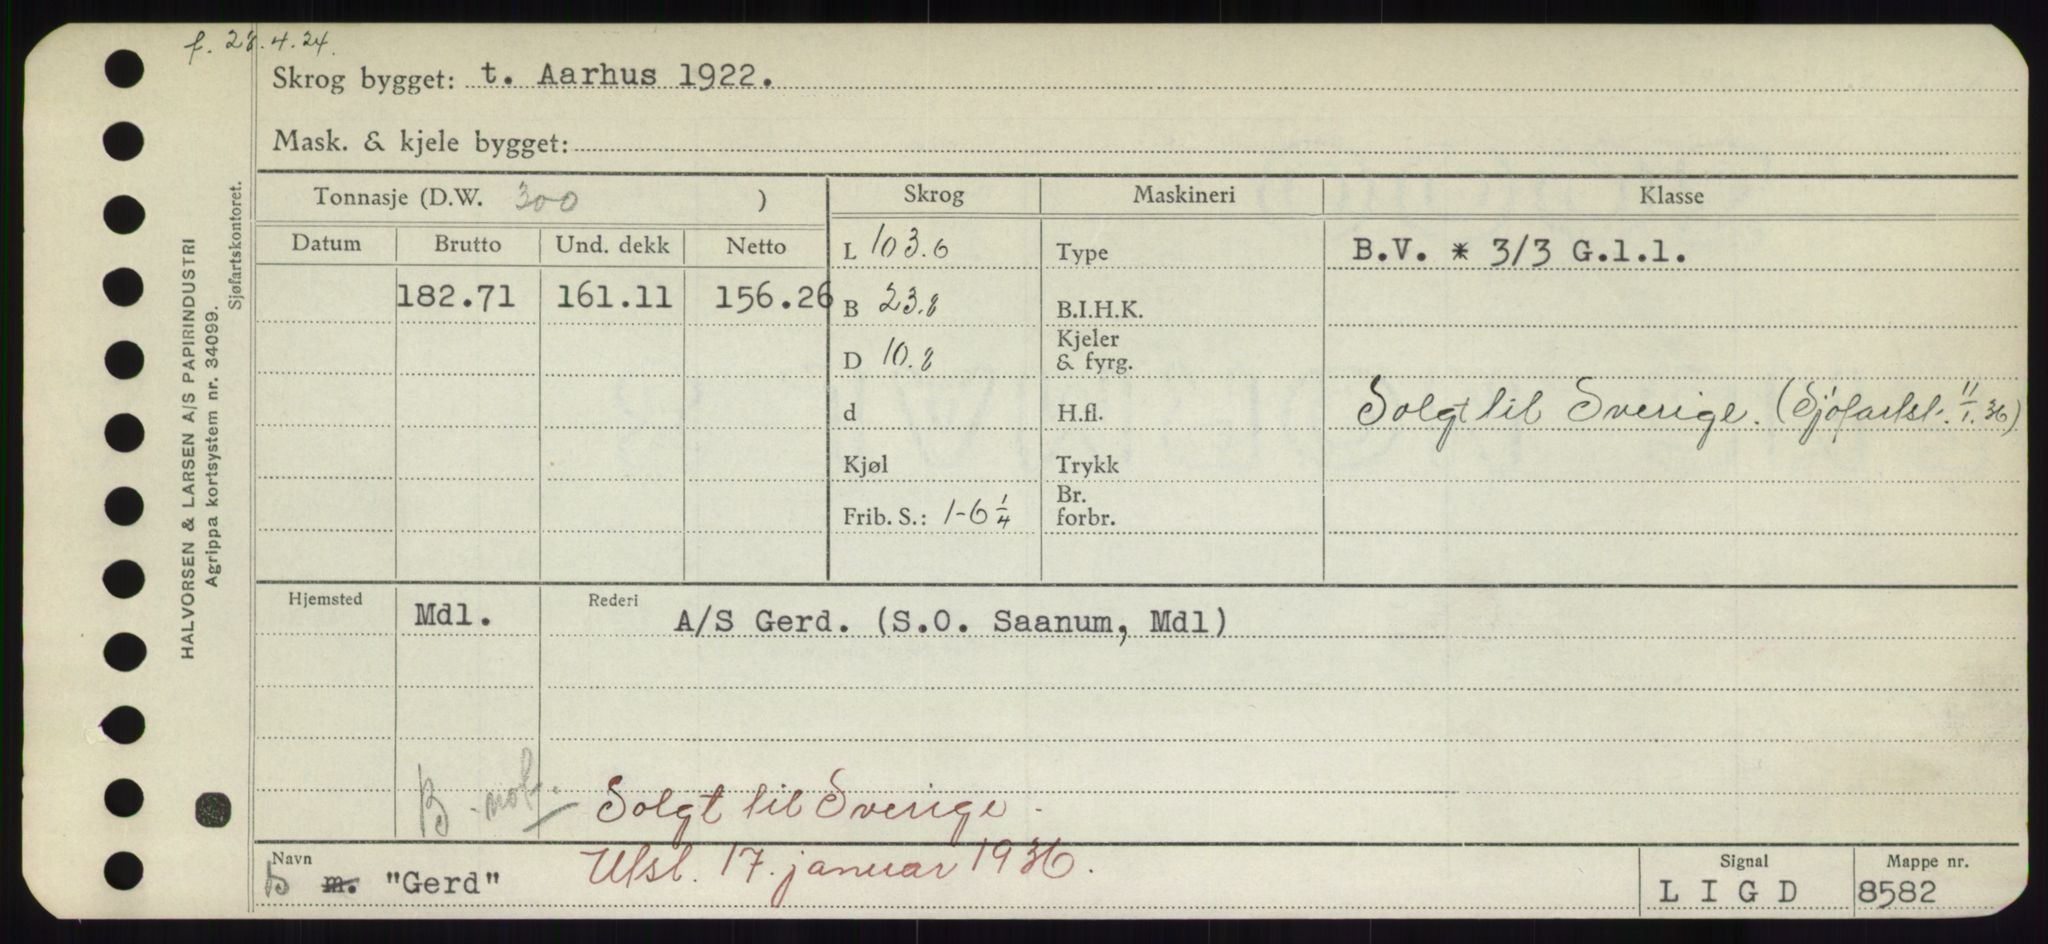 f. 28.4.24.
Skrog bygget: t. Aarhus 1922.
Mask. & kjele bygget:
Tonnasje (D.W. 300 )
Skrog Maskineri Klasse
Datum Brutto Und. dekk Netto
L 103.6 Type B.V. * 3/3 G.l.l.
182.71 161.11 156.26
B 23.8 B.I.H.K.
D 10.8 Kjeler & fyrg.
d H.fl. Solgt til Sverige. (Sjøfartst. 11/1.36)
Kjøl Trykk
Frib. S.: 1-6 1/4 Br. forbr.
Hjemsted Mdl. Rederi A/S Gerd. (S.O. Saanum, Mdl)
B - not. Solgt til Sverige.
Utsl. 17. januar 1936.
Navn
B m. "Gerd"
Signal
L I G D
Mappe nr.
8582
HALVORSEN & LARSEN A/S PAPIRINDUSTRI
Agrippa kortsystem nr. 34099.
Sjøfartskontoret.